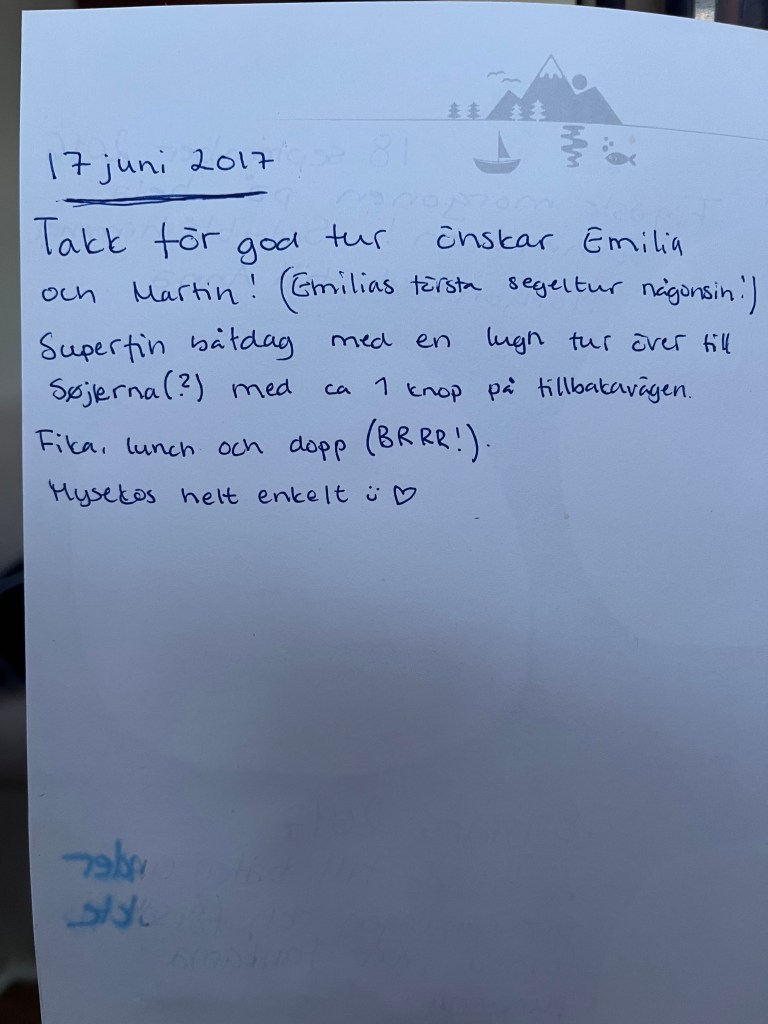 17 juni 2017
Takk för god tur önskar Emilia
och Martin! (Emilias första segeltur någonsin!)
Superfin båtdag med en lugn tur över till
Søjkrna(?) med ca 1 knop på tillbakavägen.
Fika, lunch och dopp (BRRR!).
Hysekos helt enkelt ü ♡